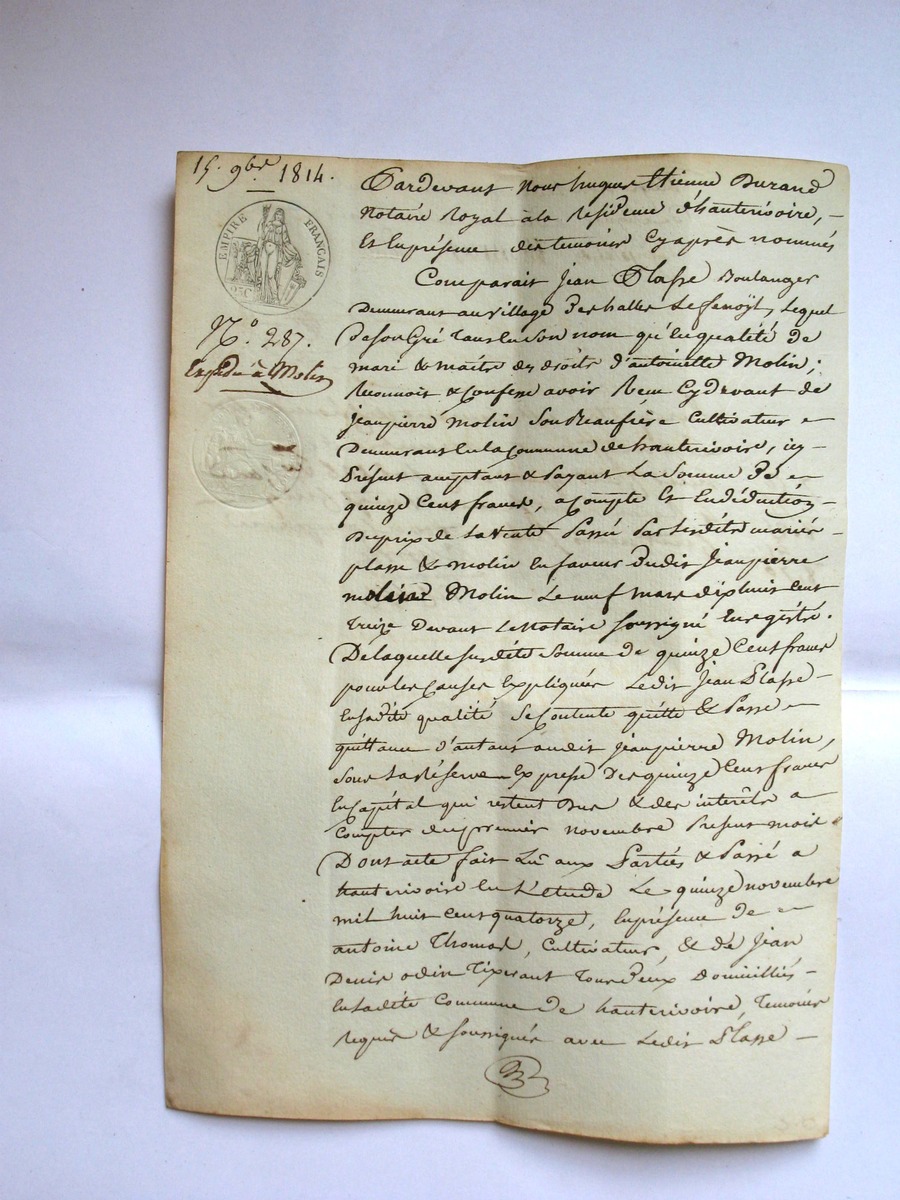 15. 9bre 1814.
EMPIRE FRANÇAIS
25 C
N° 287.
Expédié à Molin
Pardevant nous hugues Etienne Durand
Notaire Royal ala Residence d'hauterivoire, -
Et Enprésence des temoins Cyaprès nommés
Comparait Jean Plasse Boulanger
Demeurant au village des halles, lequel
de son Gré tant En Son nom qu'En qualité de
mari & maître des droits d'antoinette Molin;
Reconnoit & Confesse avoir Recu Cydevant de
Jeanpierre Molin Son Beaufrère Cultivateur
Demeurant En la Commune de hauterivoire, icy
Présent acceptant & Payant La Somme de
quinze Cent francs, acompte Et En déduction
Du prix de La Vente Passée Par Lesdits mariés
plasse & molin En faveur Dudit Jeanpierre
Molin Le neuf mars dixhuit Cent
treize Devant LeNotaire Soussigné Enregistré.
De laquelle Susdite Somme de quinze Cent francs
pour les Causes Expliquées Ledit Jean Plasse -
En sadite qualité Se Contente quitte & Passe
quittance d'autant audit Jeanpierre Molin,
Sous La Réserve Expresse Des quinze Cent francs
En Capital qui restent Dus & des intérêts a
Compter du premier novembre Present mois
Dont acte fait Lu aux Parties & Passé a
hauterivoire En L'etude Le quinze novembre
mil huit Cent quatorze, En présence de
antoine Thomas, Cultivateur, & de Jean
Denis odin Tixerant tous Deux Domiciliés -
En Ladite Commune de hauterivoire, Temoins
Requis & Soussignés avec Ledit Plasse -